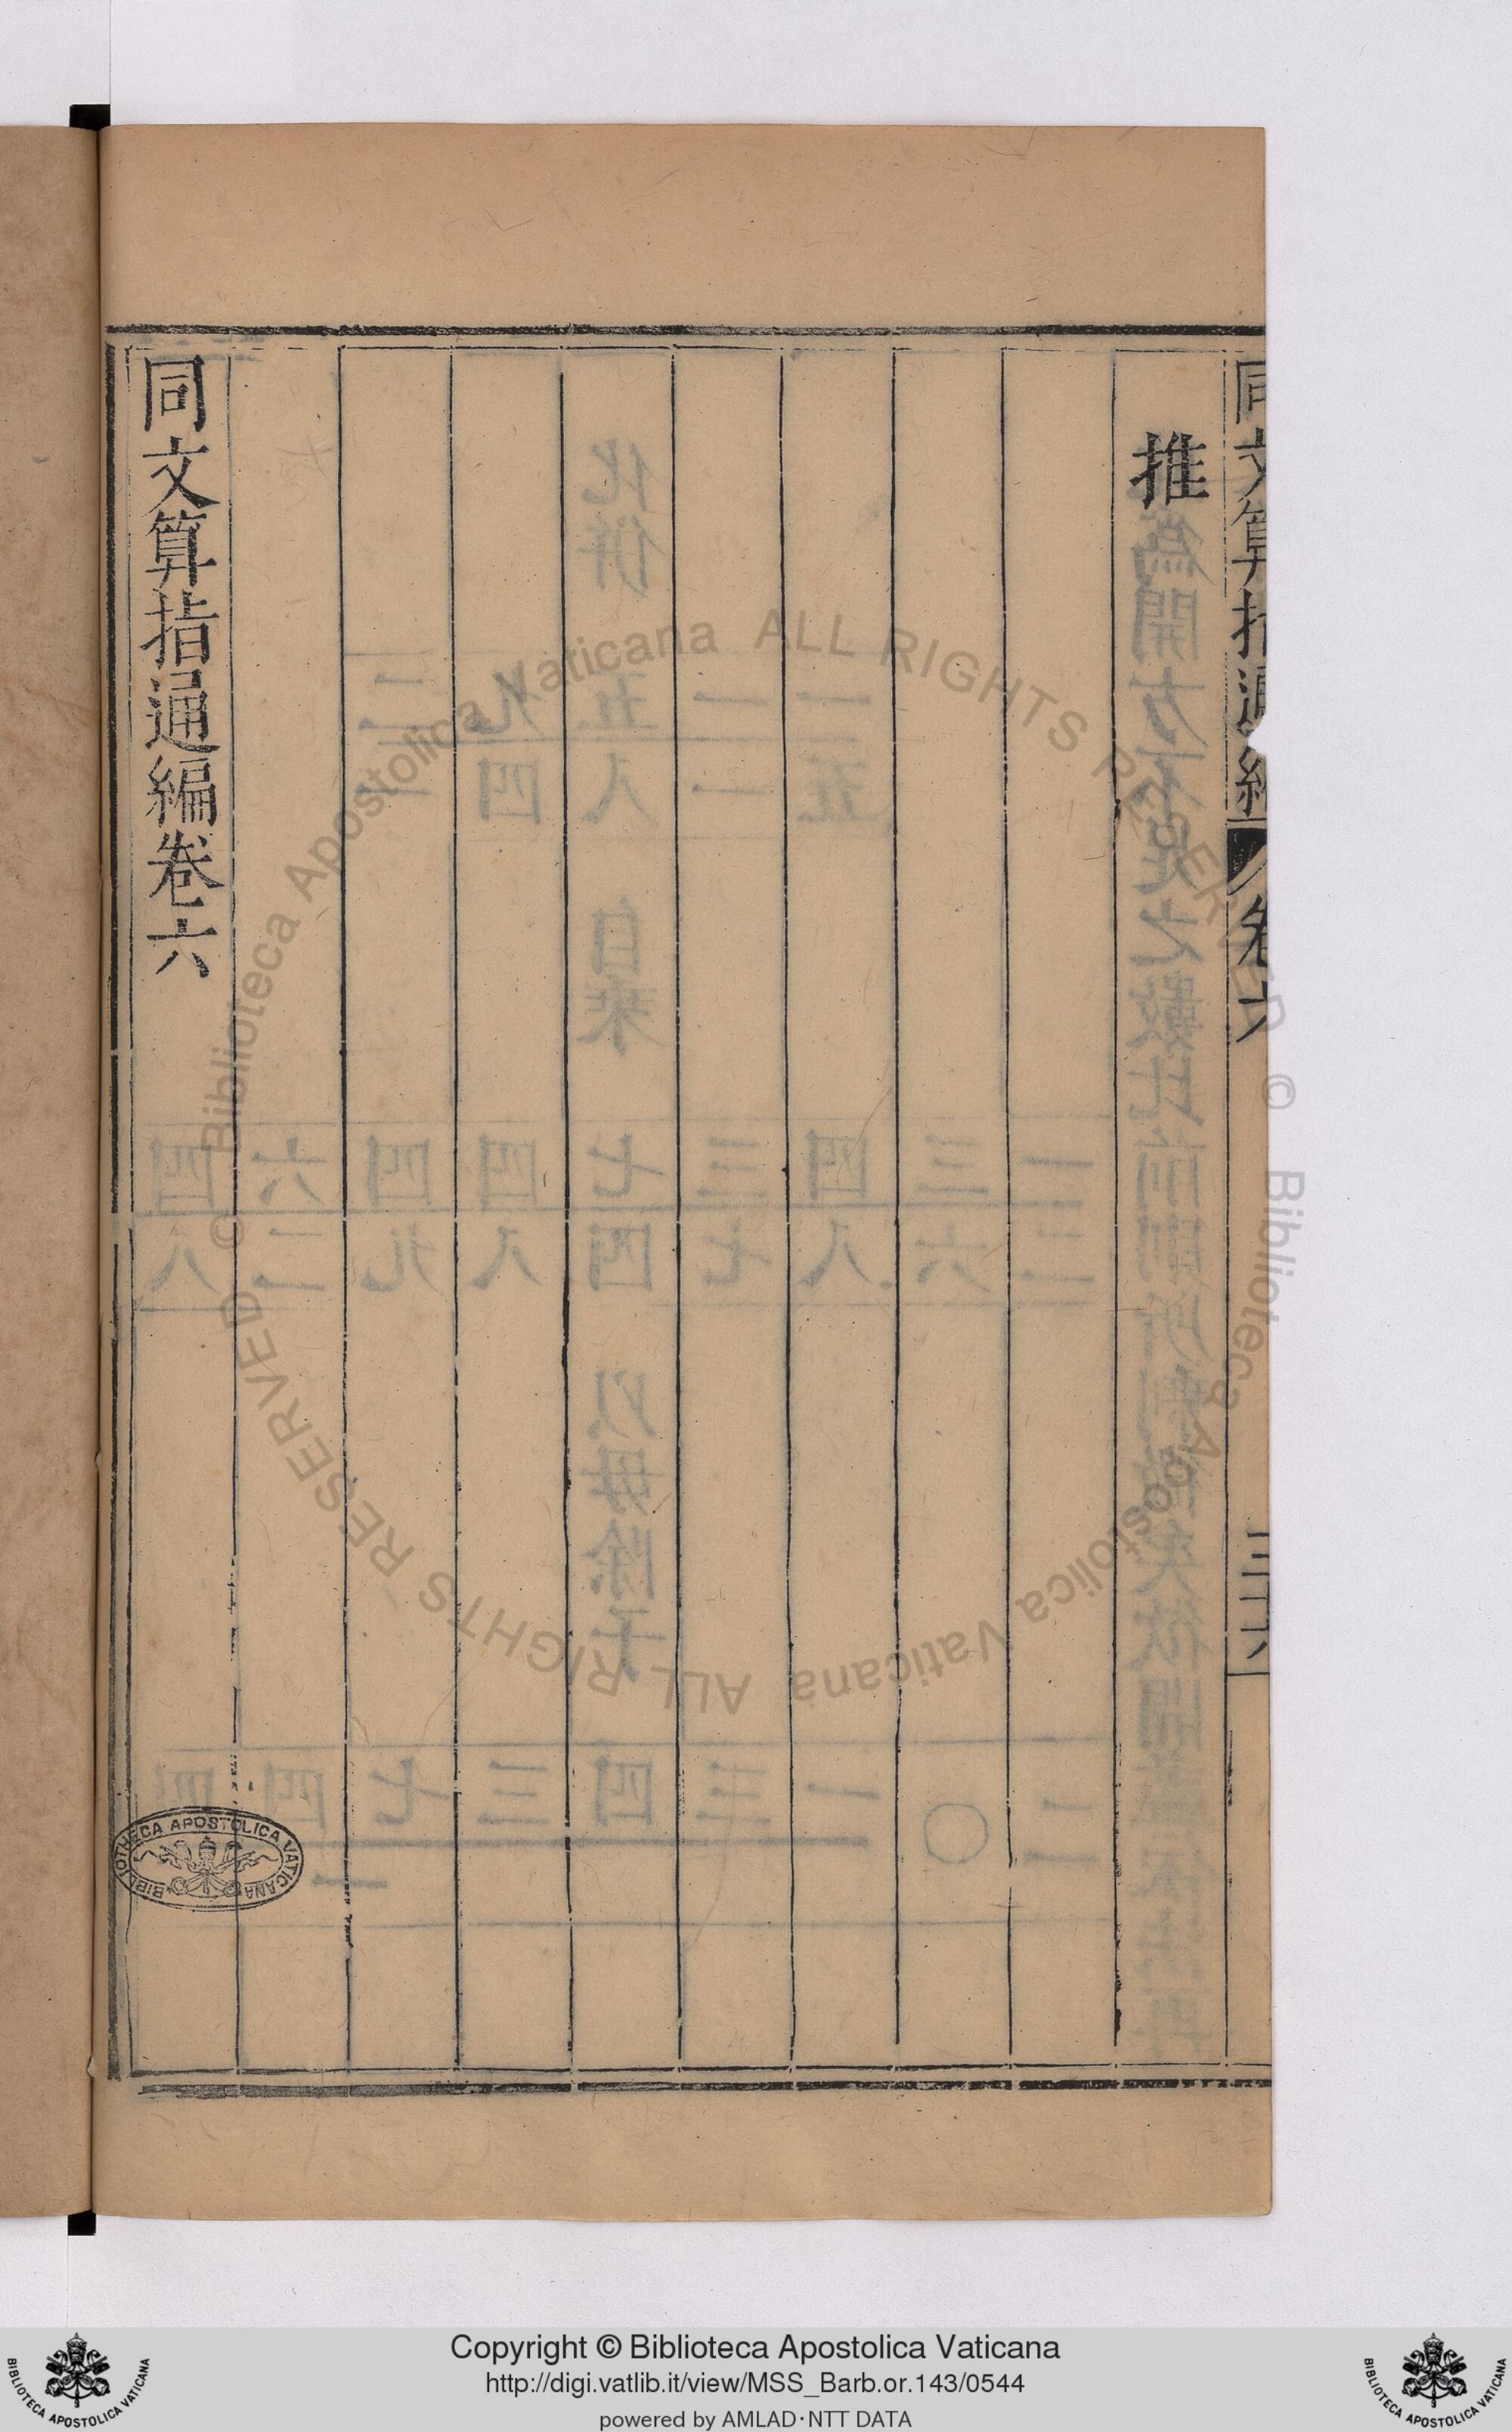 同文算指通編 卷六 三十六
推
同文算指通編卷六
BIBLIOTHECA APOSTOLICA VATICANA
© Biblioteca Apostolica Vaticana ALL RIGHTS RESERVED © Biblioteca Apostolica Vaticana ALL RIGHTS RESERVED
Copyright © Biblioteca Apostolica Vaticana
http://digi.vatlib.it/view/MSS_Barb.or.143/0544
powered by AMLAD·NTT DATA
BIBLIOTECA APOSTOLICA VATICANA
BIBLIOTECA APOSTOLICA VATICANA